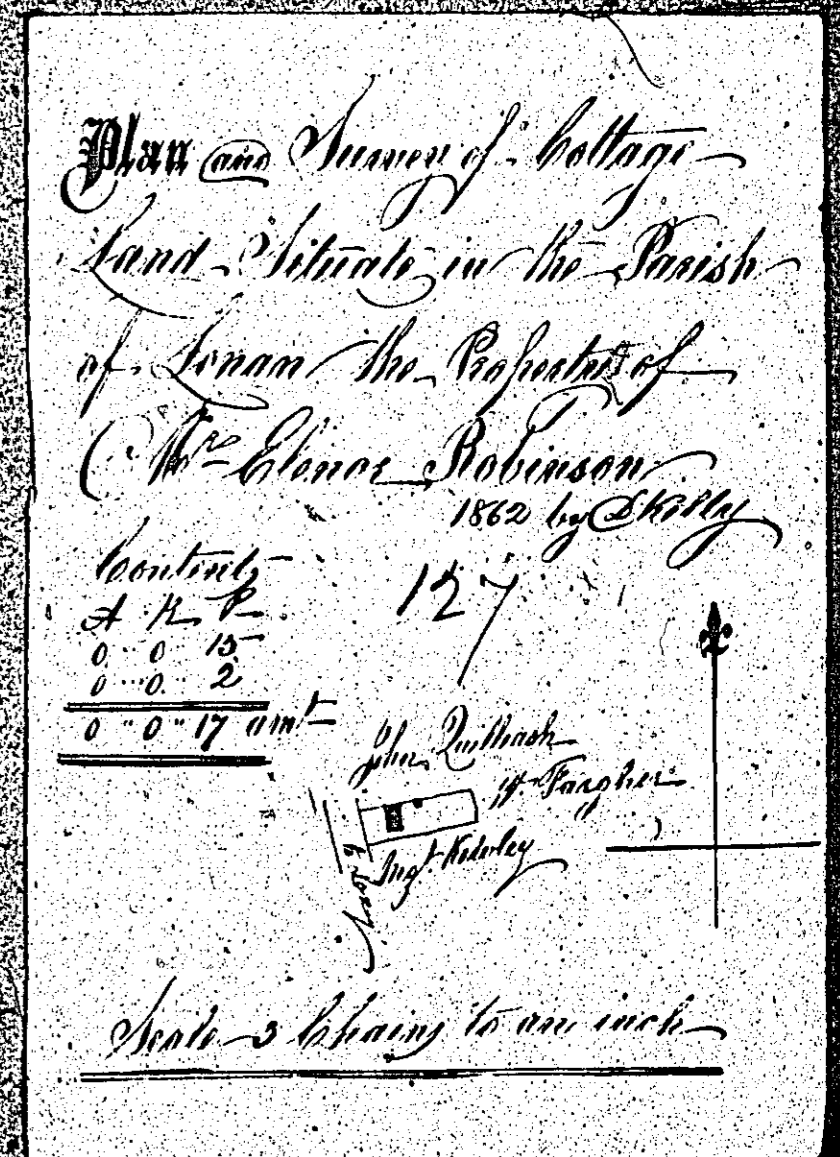 Plan and Survey of Cottage
Land Situate in the Parish
of Lonan the Property of
Mrs Elenor Robinson
1862 by Kelly
Contents
A R P
0 " 0 " 15
0 " 0 " 2
0 " 0 " 17 amt
127
John
Fargher
to Laxey
Scale 3 Chains to an inch